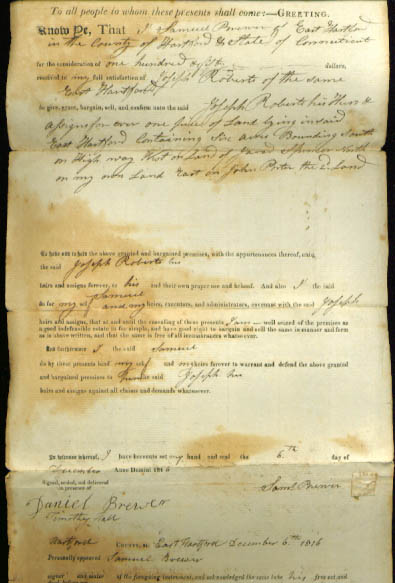 To all people to whom these presents shall come:—GREETING.
Know Ye, That I Samuel Brewer of East Hartford
in the County of Hartford & State of Connecticut
for the consideration of one hundred & dollars,
received to my full satisfaction of Joseph Roberts of the same
East Hartford
do give, grant, bargain, sell, and confirm unto the said Joseph Roberts his Heirs &
assigns for ever one piece of Land lying in said
East Hartford Containing Six acres Bounding South
on High way West on Land of Spencer North
on my own Land East on John Porter the 2d Land
To have and to hold the above granted and bargained premises, with the appurtenances thereof, unto
the said Joseph Roberts his
heirs and assigns forever, to his and their own proper use and behoof. And also I the said
Samuel
do for my self and my heirs, executors, and administrators, covenant with the said Joseph
his
heirs and assigns, that at and until the ensealing of these presents I am well seized of the premises as
a good indefeasible estate in fee simple, and have good right to bargain and sell the same in manner and form
as is above written, and that the same is free of all incumbrances whatsoever.
And furthermore I the said Samuel
do by these presents bind my self and my heirs forever to warrant and defend the above granted
and bargained premises to him the said Joseph his
heirs and assigns against all claims and demands whatsoever.
In witness whereof, I have hereunto set my hand and seal the 6th day of
December Anno Domini 1816
Signed, sealed, and delivered
in presence of
Saml Brewer
Daniel Brewer
Timothy Hall
Hartford County, ss. East Hartford December 6th 1816
Personally appeared Samuel Brewer
signer and sealer of the foregoing instrument, and acknowledged the same to be his free act and